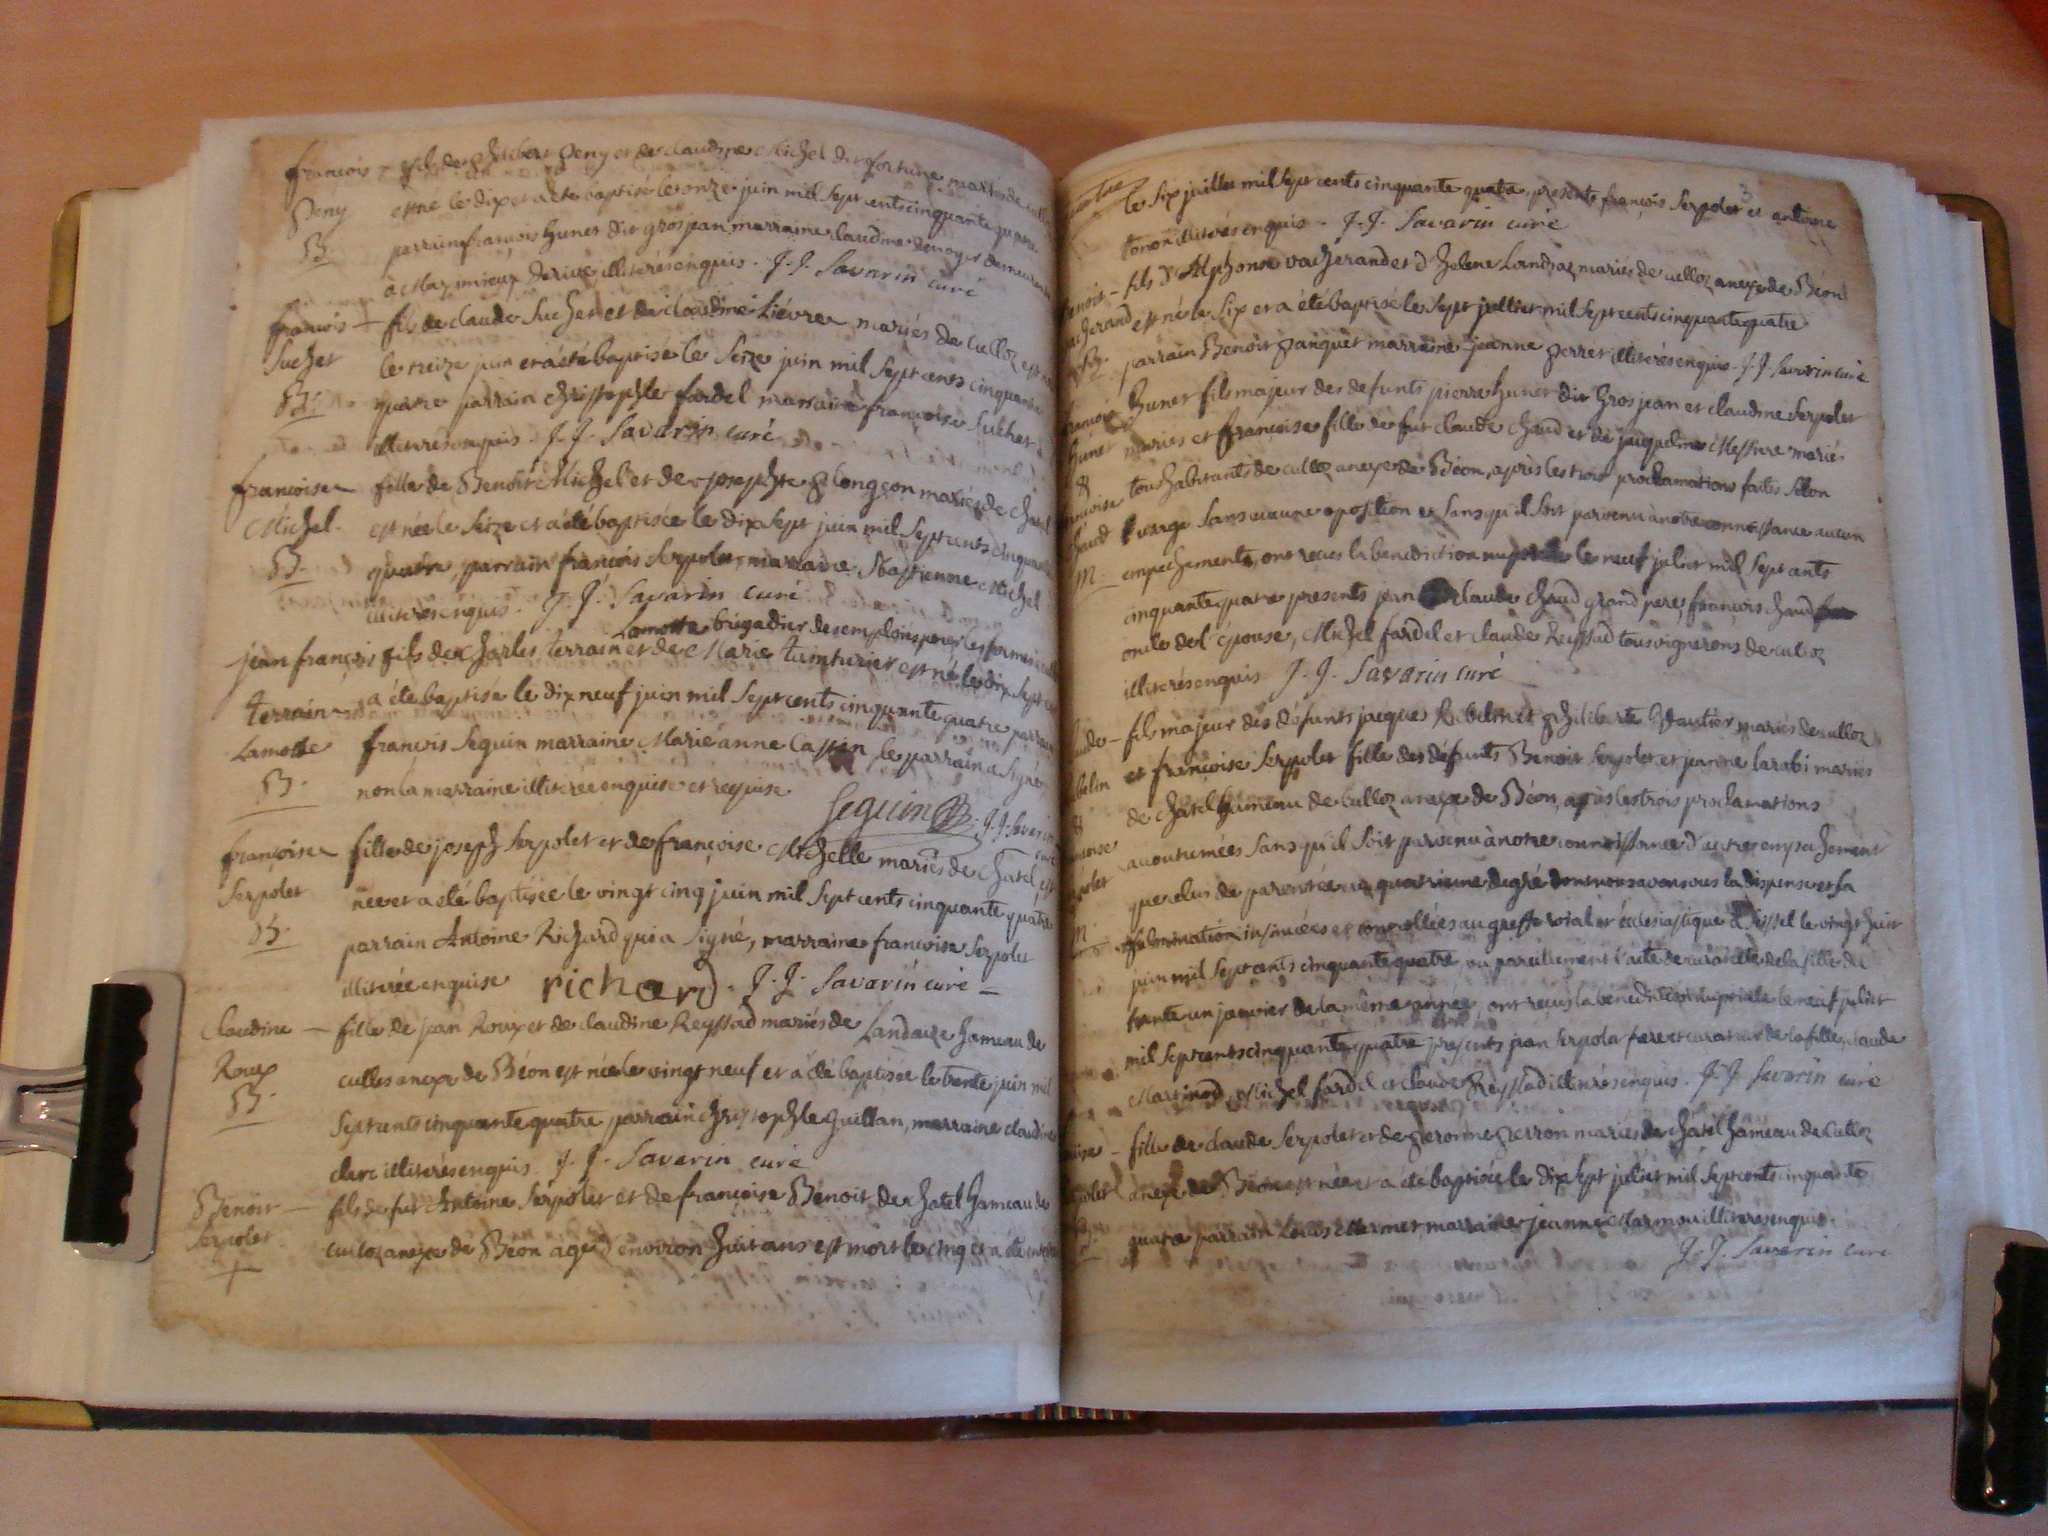 françois fils de philibert peny et de claudine Michel dit fortune mariés de
peny est né le dix et a été baptisé le onze juin mil sept cents cinquante quatre
B. parrain françois hunet dit grosjean marraine claudine demeurant
à illiterés enquis. J. J. Savarin curé
françois fils de claude Suchet et de claudine Lièvre mariés de culloz est né
Suchet le treize juin et a été baptisé le seize juin mil sept cents cinquante
B. quatre parrain christophle fardel marraine françoise Suchet
illiterés enquis. J. J. Savarin curé
françoise fille de Benoit Michel et de josephte plongeon mariés de chatel
Michel. est née le seize et a été baptisée le dix sept juin mil sept cents cinquante
B. quatre, parrain françois Serpolet, marraine Michel
illiterés enquis. J. J. Savarin curé
Lamotte brigadier des emplois pour les fermes
jean françois fils de charles terrain et de Marie tinturier est né le dix sept
terrain a été baptisé le dix neuf juin mil sept cents cinquante quatre parrain
Lamotte françois Seguin marraine Marie anne le parrain a signé
B. non la marraine illiterée enquise et requise Seguin J. J. Savarin curé
françoise fille de joseph Serpolet et de françoise Michelle mariés de chatel est
Serpolet née et a été baptisée le vingt cinq juin mil sept cents cinquante quatre
B. parrain Antoine Richard qui a signé, marraine françoise Serpolet
illiterée enquise richard. J. J. Savarin curé
Claudine fille de jean Roux et de claudine Reyssad mariés de Landaize hameau de
Roux culles anexe de Béon est née le vingt neuf et a été baptisée le trente juin mil
B. sept cents cinquante quatre parrain christophle marraine claudine
clerc illiterés enquis. J. J. Savarin curé
Benoit fils de fut Antoine Serpolet et de françoise Benoit de chatel hameau de
Serpolet culoz anexe de Béon agé d'environ huit ans est mort le cinq et a été
+
le six juillet mil sept cents cinquante quatre, presents françois Serpolet et antoine
illiterés enquis. J. J. Savarin curé
fils d'Alphonse vacherand et d'helene Landraz mariés de culloz anexe de Béon
est né le six et a été baptisé le sept juillet mil sept cents cinquante quatre
B. parrain Benoit panquet marraine jeanne perret illiterés enquis. J. J. Savarin curé
françois hunet fils majeur des defunts pierre hunet dit Grosjean et claudine Serpolet
hunet mariés et françoise fille de fut claude chaud et de jaqueline Messure mariés
& tous habitants de culloz anexe de Béon, après les trois proclamations faites selon
l'usage sans aucune oposition et sans qu'il soit parvenu à notre connoissance aucun
M. empechements, ont reçus la benediction nuptiale le neuf julliet mil sept cents
cinquante quatre presents jean claude chaud grand pere, françois chaud
oncle de l'epouse, Michel fardel et claude Reyssad tous vignerons de culloz
illiterés enquis J. J. Savarin curé
fils majeur des défunts jaques Robelin et philiberte Vautier mariés de culloz
et françoise Serpolet fille des défunts Benoit Serpolet et jeanne larabi mariés
& de chatel hameau de culloz anexe de Béon, après les trois proclamations
acoutumées sans qu'il soit parvenu à notre connoissance d'autres empechement
que celui de parentée au quatrieme degré dont nous avons vus la dispense et sa
fulmination insinuées et controllées au greffe roial et ecclesiastique le vingt huit
juin mil sept cents cinquante quatre, vu pareillement l'acte de curatelle de la fille du
trente un janvier de la même année, ont reçus la benediction nuptiale le neuf juliet
mil sept cents cinquante quatre presents jean Serpolet frere et curateur de la fille, claude
Martinod, Michel fardel et claude Reyssad illiterés enquis. J. J. Savarin curé
fille de claude Serpolet et de perronne perron mariés de chatel hameau de culloz
anexe de Béon est née et a été baptisée le dix sept juliet mil sept cents cinquante
quatre parrain Louis Mermet, marraine jeanne illiterés enquis.
J. J. Savarin curé